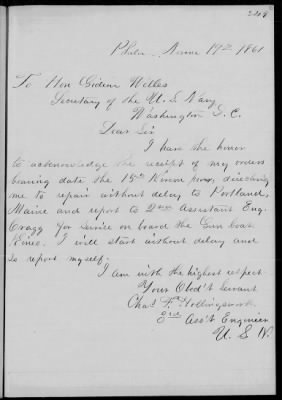 Phila. Nove 19th 1861
To Hon Gideon Welles
Secretary of the U. S. Navy
Washington D. C.
Dear Sir
I have the honor
to acknowledge the receipt of my orders
bearing date the 15th Novem prox, directing
me to repair without delay to Portland,
Maine and report to 2nd Assistant Eng.
Cragg for service on board the Gun boat
Kineo. I will start without delay and
so report myself.
I am with the highest respect
Your Obed't Servant
Chas F. Hollingsworth
3rd Ass't Engineer
U. S. N.